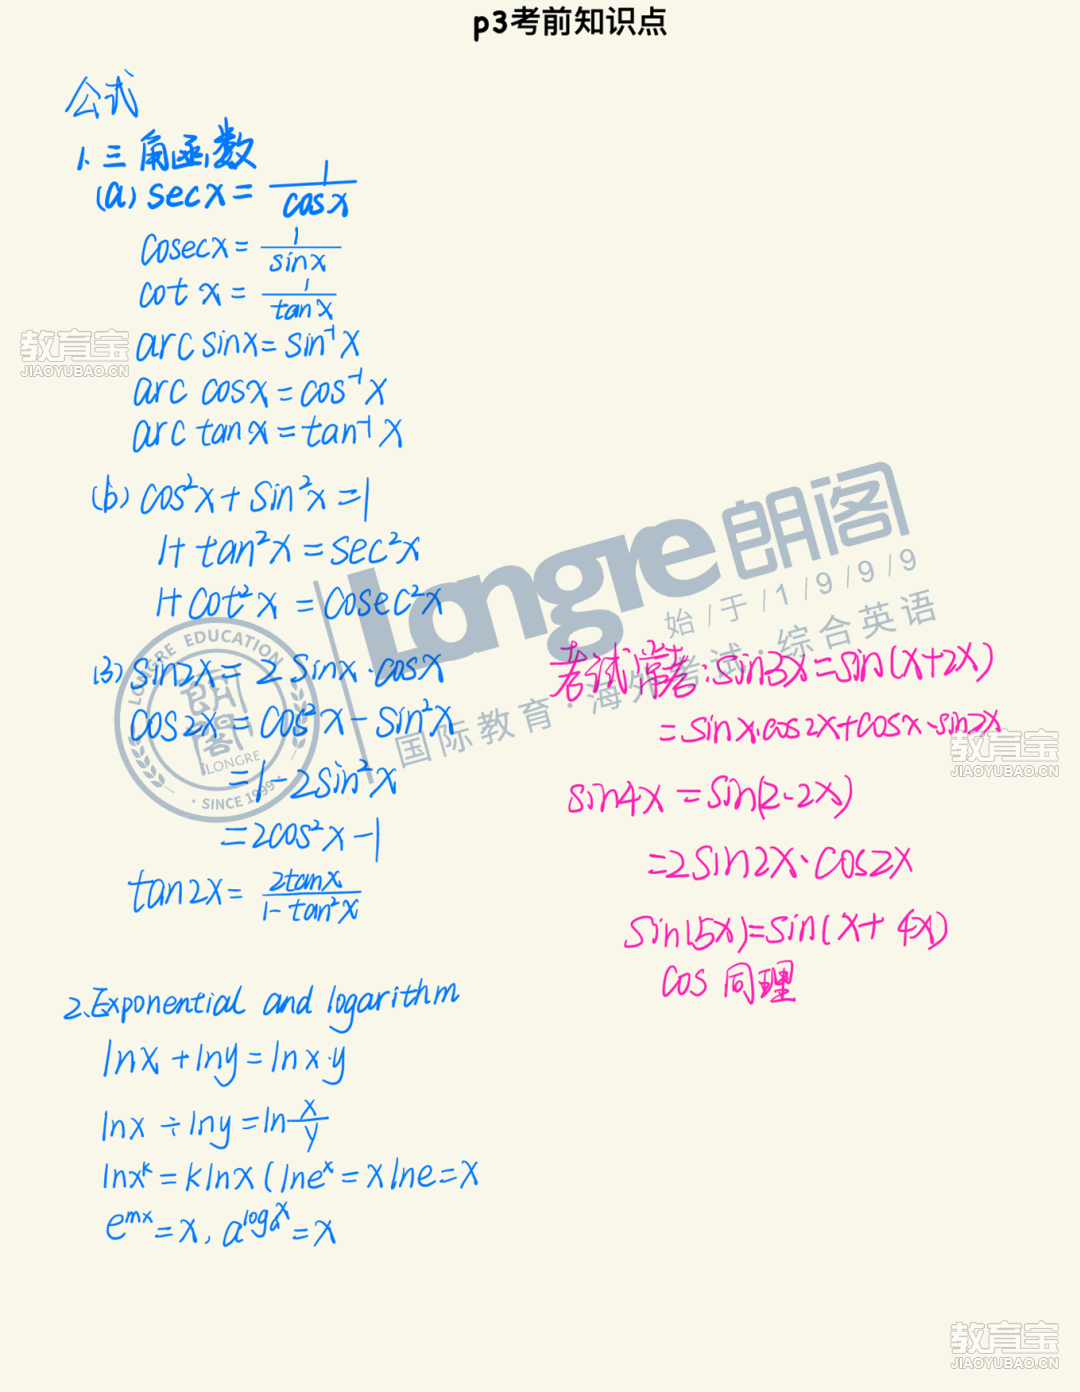 p3考前知识点
公式
1.三角函数
(a) secx = 1/cosx
cosecx = 1/sinx
cot x = 1/tanx
arc sinx = sin⁻¹x
arc cosx = cos⁻¹x
arc tanx = tan⁻¹x
(b) cos²x + sin²x = 1
1+ tan²x = sec²x
1+ cot²x = cosec²x
(3) sin2x = 2 sinx·cosx
cos2x = cos²x - sin²x
= 1 - 2sin²x
= 2cos²x - 1
tan2x = 2tanx/1-tan²x
考试常考:sin3x = sin(x+2x)
= sinx·cos2x+cosx·sin2x
sin4x = sin(2·2x)
= 2sin2x·cos2x
sin(5x) = sin(x+ 4x)
cos 同理
2.Exponential and logarithm
lnx + lny = lnx·y
lnx ÷ lny = ln x/y
lnxᵏ = klnx (lneˣ = xlne = x
e^mx = x, a^logₐx = x
Longre 朗阁
始/于/1/9/9/9
国际教育·海外考试·综合英语
LONGRE EDUCATION
朗阁
LONGRE
·SINCE 1999·
教育宝
JIAOYUBAO.CN
教育宝
JIAOYUBAO.CN
教育宝
JIAOYUBAO.CN